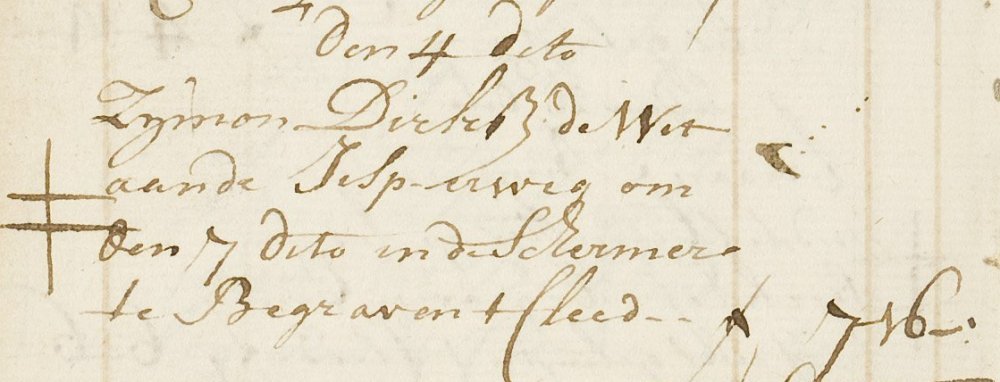 den 4 dito
Zijmon Dirksz de Wet
aande Jisp-erweg om
den 7 dito in de Schermer
te Begraven t Cleed -- f 7-16-.